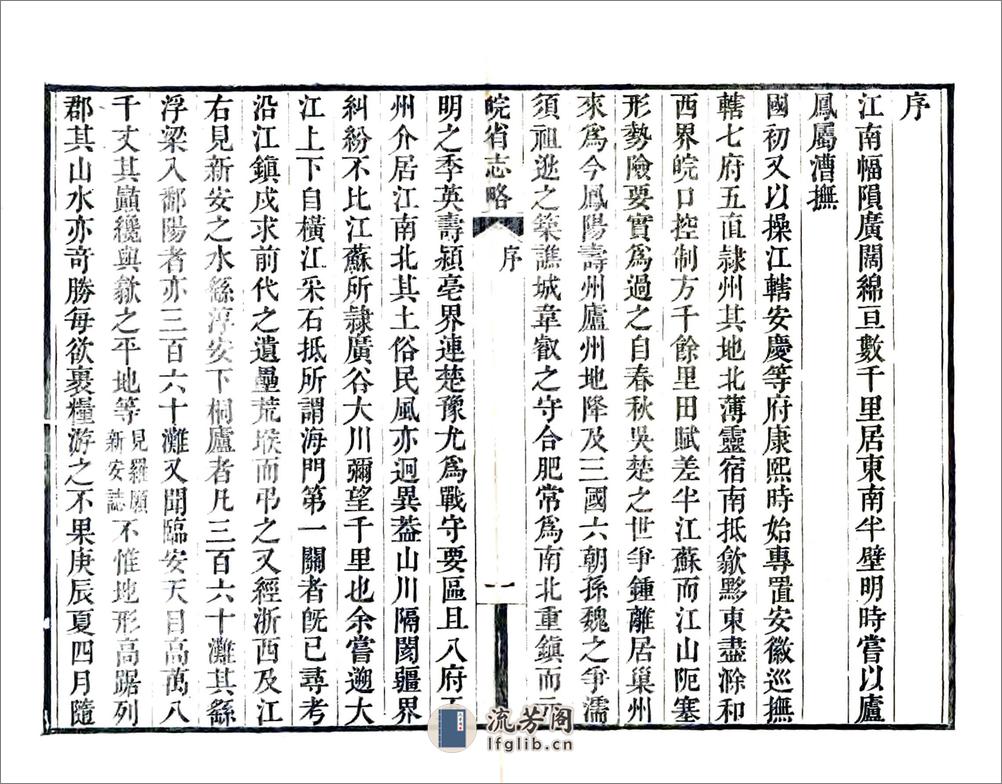 序
江南幅隕廣闊綿亘數千里居東南半壁明時嘗以廬
鳳屬漕撫
國初又以操江轄安慶等府康熙時始專置安徽巡撫
轄七府五直隷州其地北薄靈宿南抵歙黟東盡滁和
西界皖口控制方千餘里田賦差半江蘇而江山阨塞
形勢險要實爲過之自春秋吳楚之世爭鍾離居巢州
來爲今鳳陽壽州廬州地降及三國六朝孫魏之爭濡
須祖逖之築譙城韋叡之守合肥常爲南北重鎮而元
皖省志略
序
一
明之季英壽潁亳界連楚豫尤爲戰守要區且八府五
州介居江南北其土俗民風亦迥異蓋山川隔閡疆界
糾紛不比江蘇所隷廣谷大川彌望千里也余嘗遡大
江上下自橫江采石抵所謂海門第一關者旣已尋考
沿江鎮戍求前代之遺壘荒堠而弔之又經浙西及江
右見新安之水繇淳安下桐廬者凡三百六十灘其繇
浮梁入鄱陽者亦三百六十灘又聞臨安天目高萬八
千丈其巓纔與歙之平地等見羅願新安誌不惟地形高踞列
郡其山水亦奇勝每欲裹糧游之不果庚辰夏四月隨
流芳阁
lfglib.cn